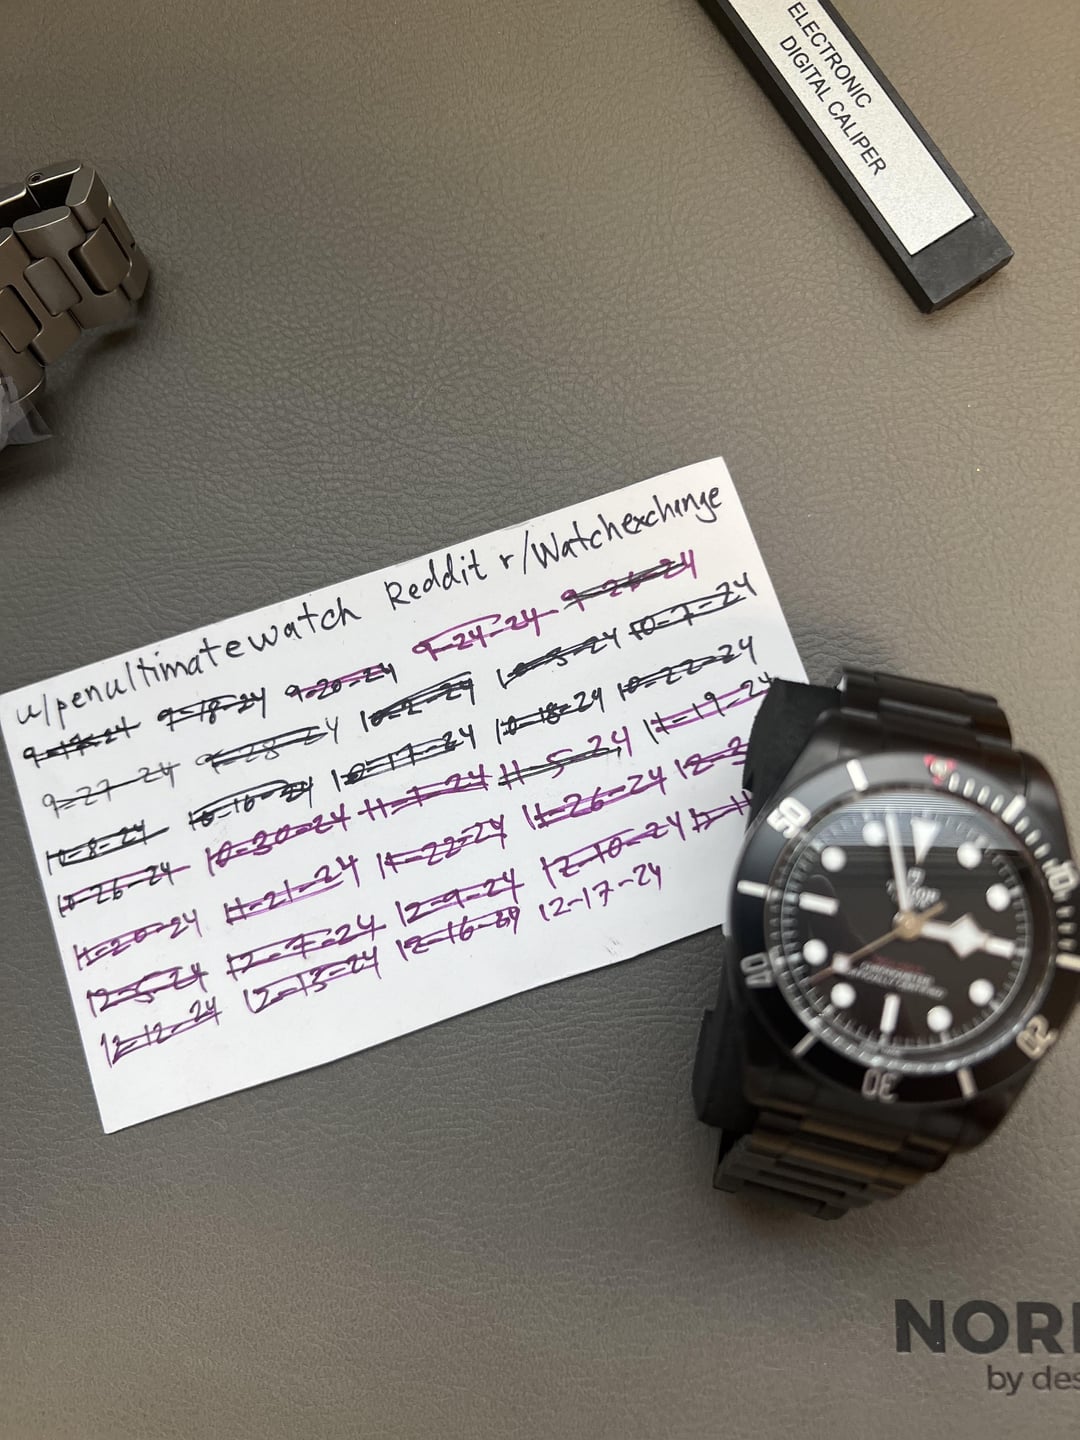 ELECTRONIC
DIGITAL CALIPER
u/penultimatewatch Reddit r/Watchexchange
9-17-24 9-18-24 9-20-24 9-24-24 9-26-24
9-27-24 9-28-24 10-2-24 10-3-24 10-7-24
10-8-24 10-16-24 10-17-24 10-18-24 10-22-24
10-26-24 10-30-24 11-1-24 11-5-24 11-19-24
11-20-24 11-21-24 11-22-24 11-26-24 12-3
12-5-24 12-7-24 12-9-24 12-10-24
12-12-24 12-13-24 12-16-24 12-17-24
50
10
40
20
30
NOR
by des